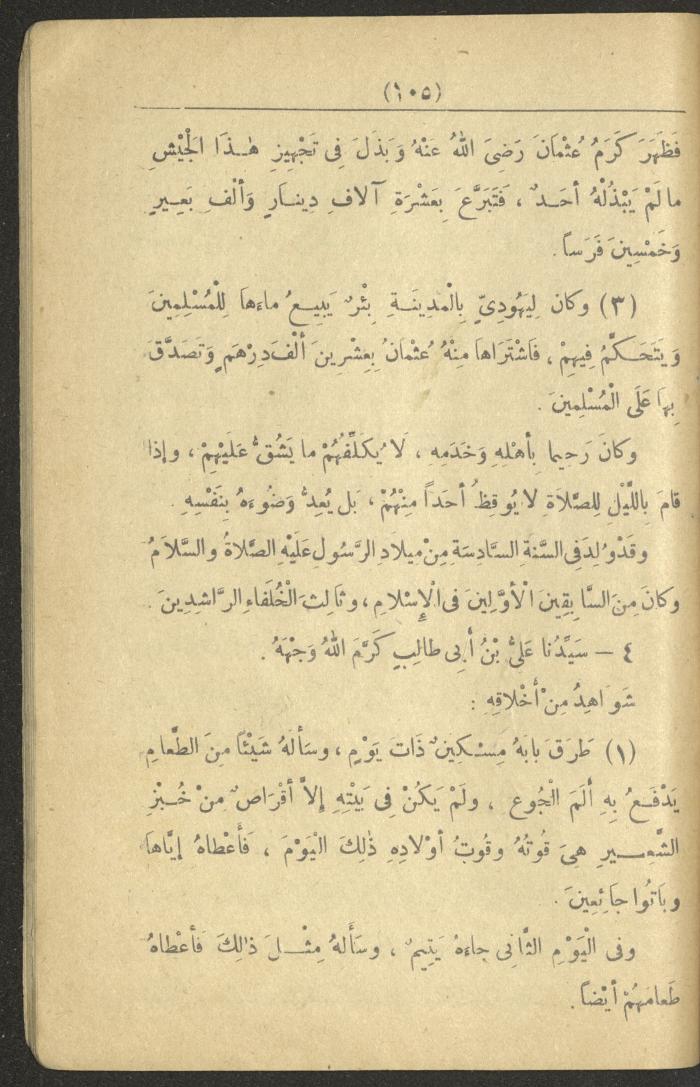 (١٠٥)
فَظَهَرَ كَرَمُ عُثْمَانَ رَضِىَ اللهُ عَنْهُ وَبَذَلَ فِى تَجْهِيزِ هٰـذَا الْجَيْشِ
مالَمْ يَبْذُلْهُ أحَـدٌ ، فَتَبَرَّعَ بِعَشْرَةِ آلافِ دِينـارٍ وَألْفِ بَعِـيرٍ
وَخَمْسِينَ فَرَساً .
(٣) وكان لِيَهُودِىّ بِالْمَدِينَـةِ بِئْرٌ يَبِيـعُ ماءَها لِلْمُسْلِمِينَ
وَيَتَحَـكَّمُ فِيهِمْ ، فَاشْتَرَاها مِنْهُ عُثْمَانُ بِعِشْرِينَ ألْفَ دِرْهَمٍ وَتَصَدَّقَ
بِهَا عَلَى الْمُسْلِمِينَ .
وكانَ رَحِيما بِأهْلِهِ وَخَدَمِهِ ، لَا يُكَلِّفُهُمْ ما يَشُقُّ عَلَيْهِمْ ، وإذا
قامَ بِاللَّيْلِ لِلصَّلَاةِ لا يُوقِظُ أحَداً مِنْهُمْ ، بَل يُعِدُّ وَضُوءَهُ بِنَفْسِهِ .
وقَدْ وُلِدَ فِى السَّنَةِ السَّادِسَةِ مِنْ مِيلادِ الرَّسُولِ عَلَيْهِ الصَّلاةُ والسَّلَامُ
وكانَ مِنَ السَّابِقِينَ الْأوَّلِينَ فى الْإِسْلامِ ، وثَالِثَ الْخُلَفاءِ الرَّاشِدِينَ .
٤ – سَيِّدُنا عَلىُّ بْنُ أبِى طالِبٍ كَرَّمَ اللهُ وَجْهَهُ .
شَوَاهِدُ مِنْ أخْلاقِهِ :
(١) طَرَقَ بابَهُ مِسْـكِينٌ ذَاتَ يَوْمٍ ، وسَألَهُ شَيْئًا مِنَ الطَّعامِ
يَدْفَـعُ بِهِ ألَمَ الْجُوعِ ، ولَمْ يَكُنْ فِى بَيْتِهِ إلاَّ أقْرَاصٌ مِنْ خُـبْزِ
الشَّعِـيرِ هِىَ قُوتُهُ وقُوتُ أوْلادِهِ ذٰلِكَ الْيَوْمَ ، فَأعْطاهُ إيَّاها
وبَاتُوا جائِعِينَ .
وفى الْيَوْمِ الثَّانِى جاءَهُ يَتِيمٌ ، وسَألَهُ مِثْـلَ ذٰلِكَ فَأعْطاهُ
طَعامَهُمْ أيْضاً .